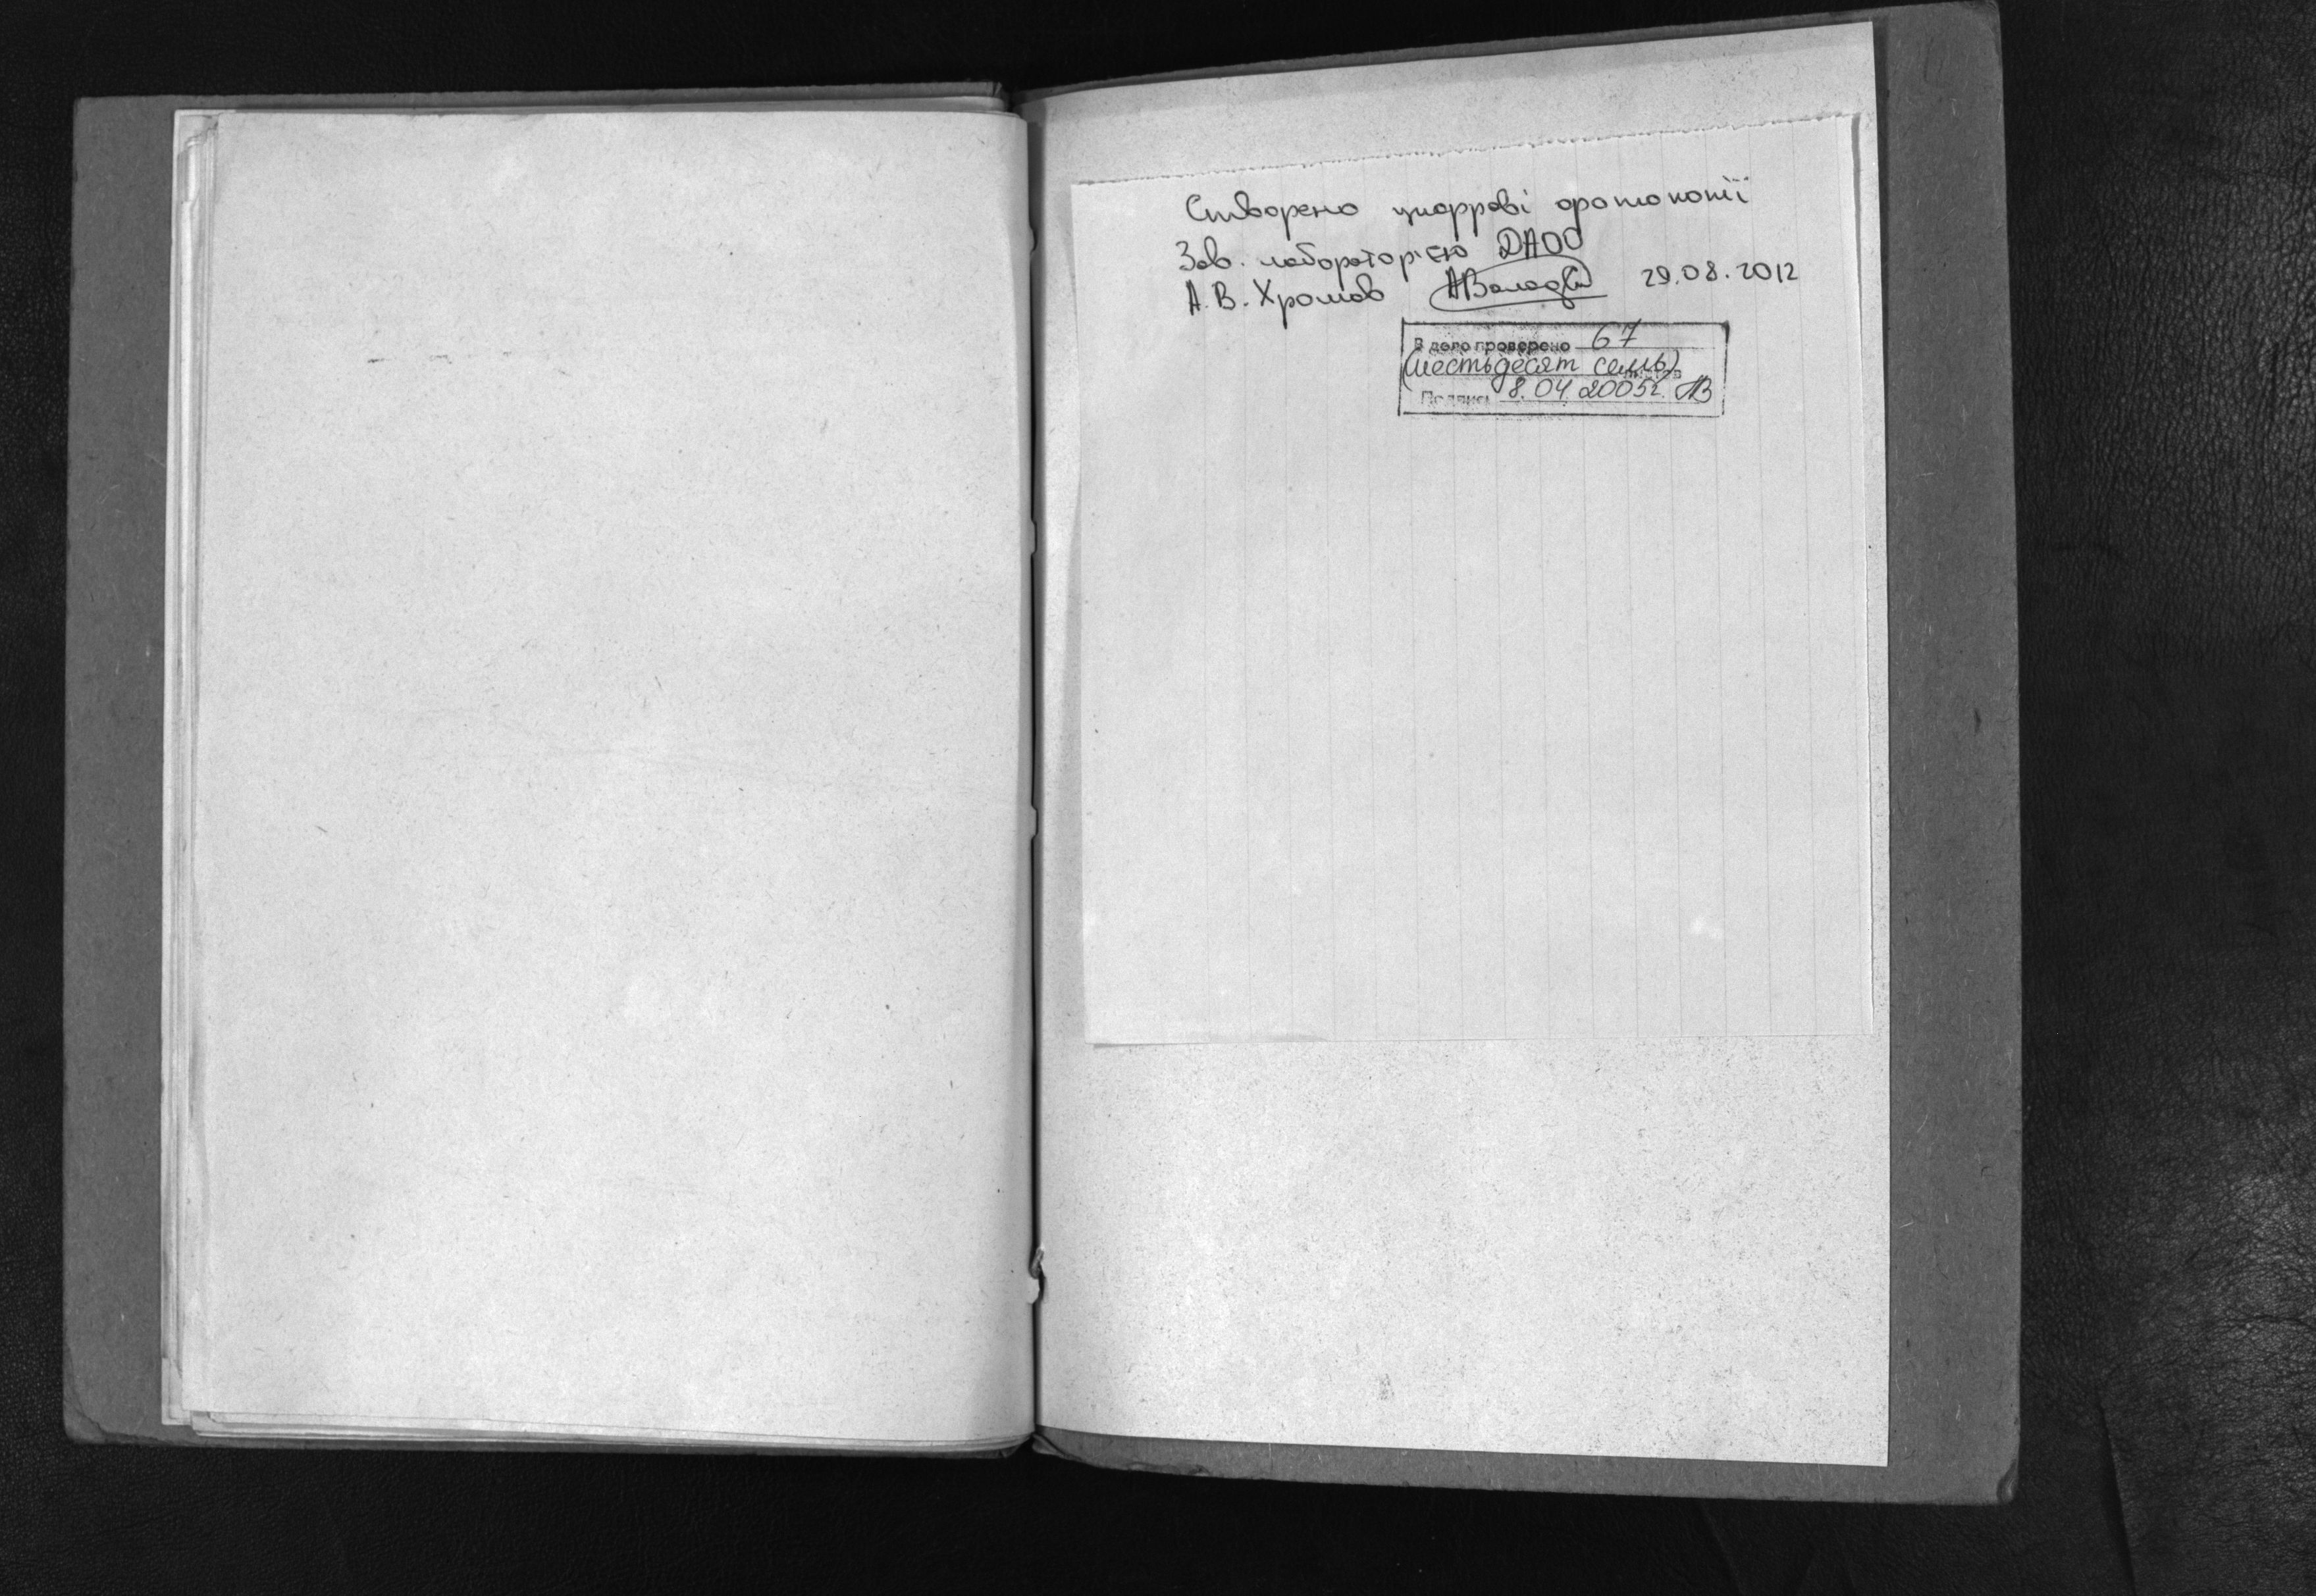 Створено цифрові фотокопії
Зав. лабораторією ДАОО
А.В. Хромов 29.08.2012
В деле проверено 67
(шестьдесят семь) листов
Подпись 8.04.2005г.